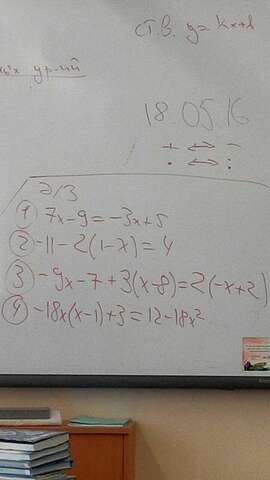 ст.в. y=kx+l
ур-ий
18.05.16
+ ⇔ −
· ⇔ :
д/з
① 7x-9=-3x+5
② -11-2(1-x)=4
③ -9x-7+3(x-8)=2(-x+2)
④ -18x(x-1)+3=12-18x²